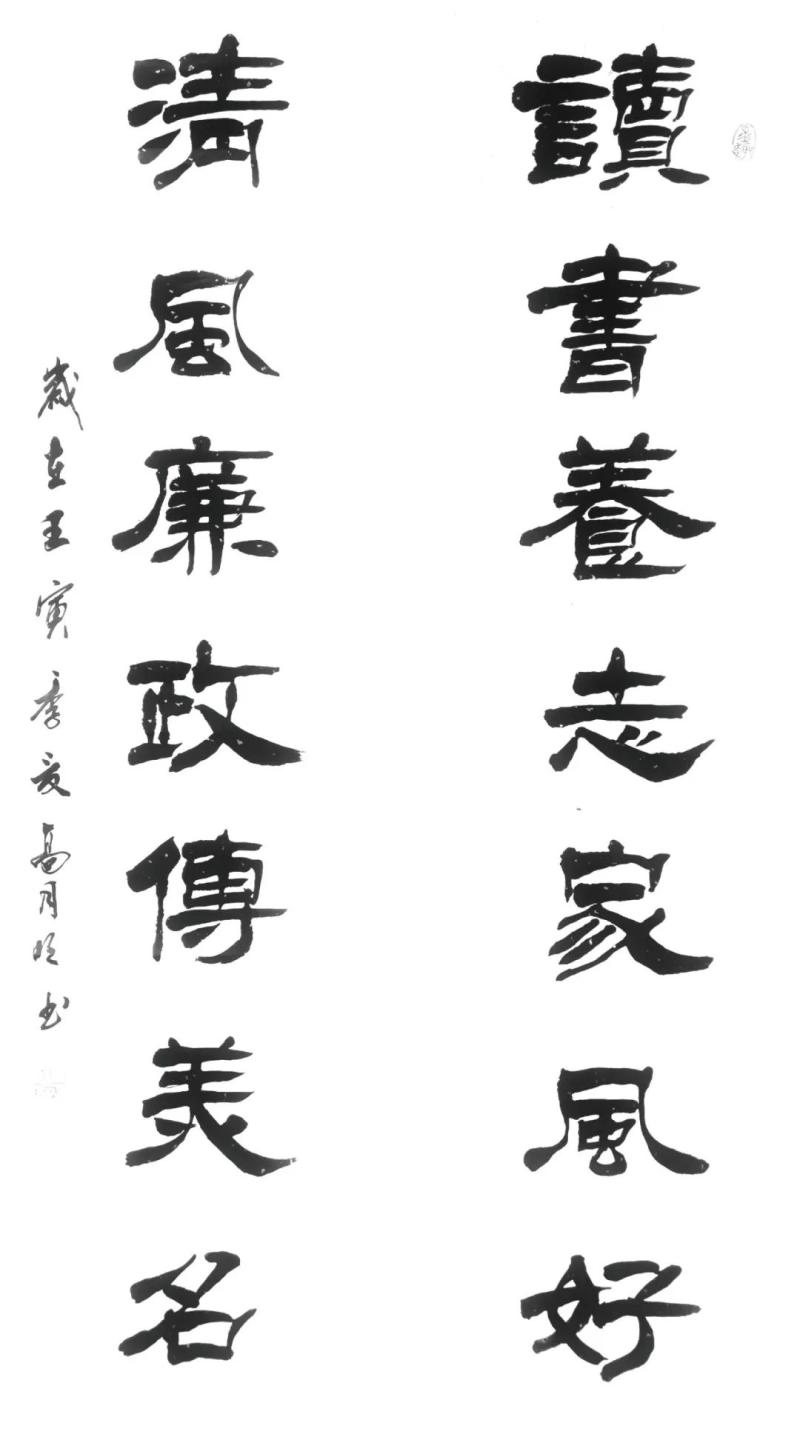 讀書養志家風好
清風廉政傳美名
歲在壬寅季夏高月恆书